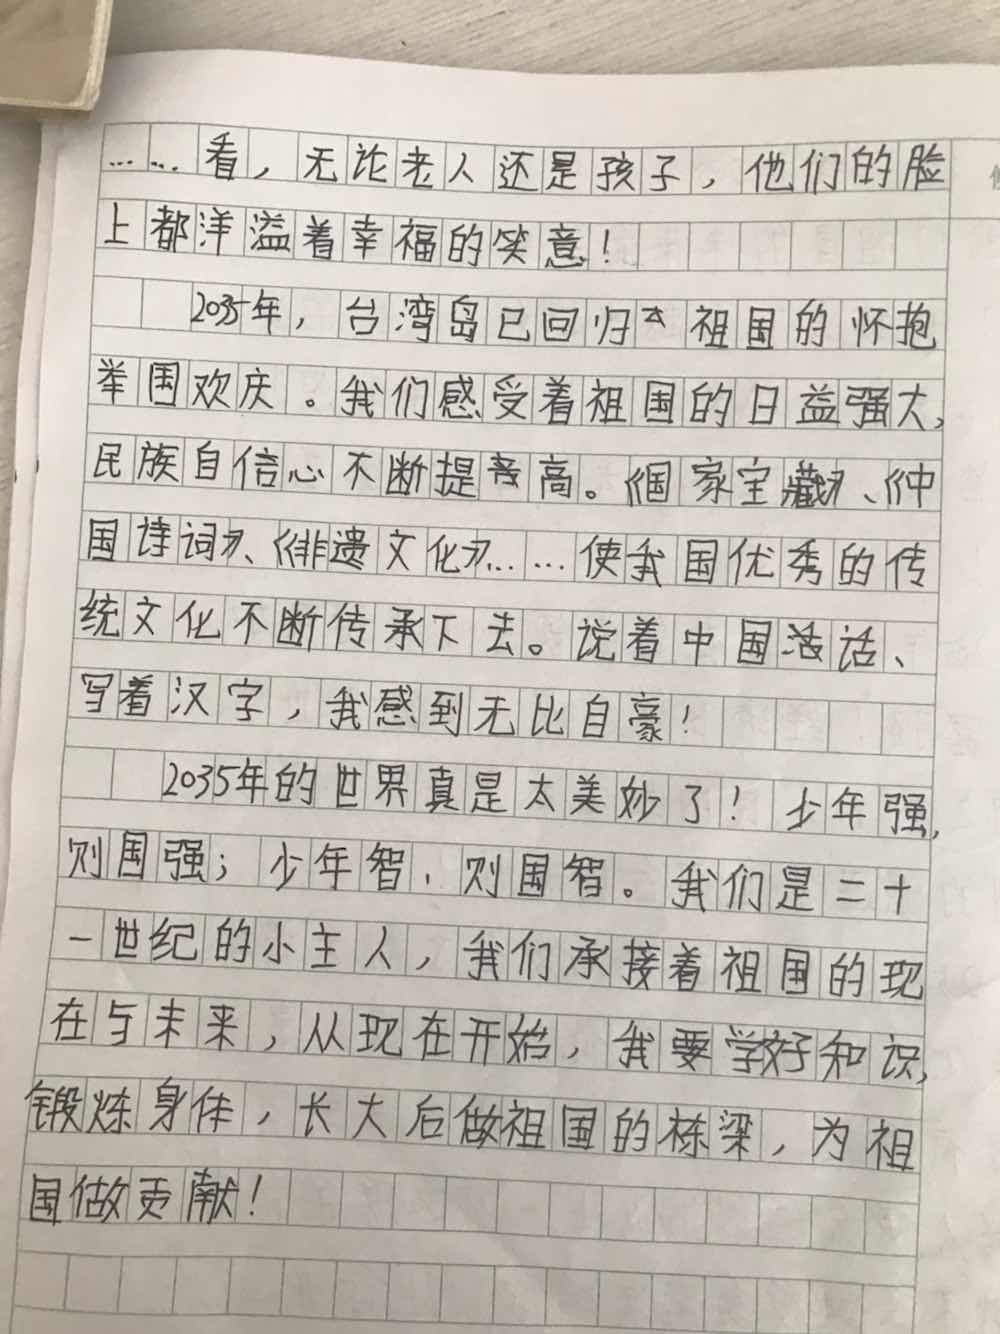 ……看，无论老人还是孩子，他们的脸
上都洋溢着幸福的笑意！
2035年，台湾岛已回归祖国的怀抱
举国欢庆。我们感受着祖国的日益强大，
民族自信心不断提高。《国家宝藏》、《中
国诗词》、《非遗文化》……使我国优秀的传
统文化不断传承下去。说着中国话、
写着汉字，我感到无比自豪！
2035年的世界真是太美妙了！少年强，
则国强；少年智，则国智。我们是二十
一世纪的小主人，我们承接着祖国的现
在与未来，从现在开始，我要学好知识，
锻炼身体，长大后做祖国的栋梁，为祖
国做贡献！